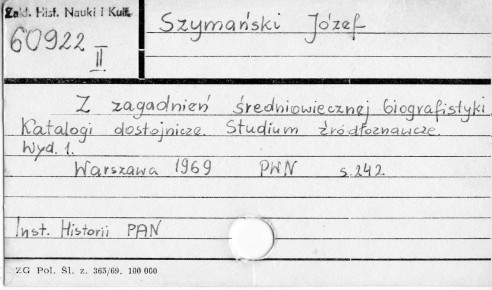 Zakł. Hist. Nauki I Kult.
60922
II
Szymański Józef
Z zagadnień średniowiecznej biografistyki
Katalogi dostojnicze. Studium źródłoznawcze.
Wyd. 1.
Warszawa 1969 PWN s. 242.
Inst. Historii PAN
ZG Pol. Śl. z. 365/69. 100 000